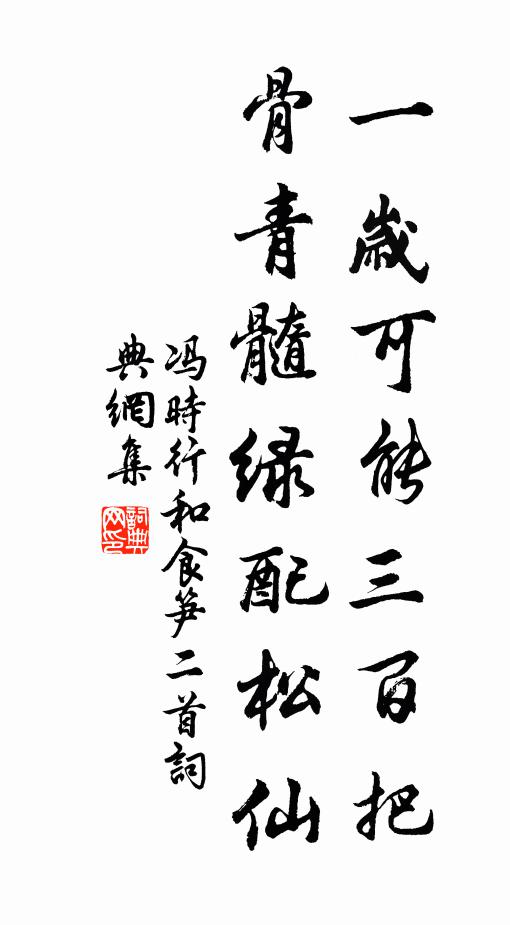 一歲可能三百把
骨青髓绿配松仙
冯時行和食笋二首詞
典網集
詞典
网印